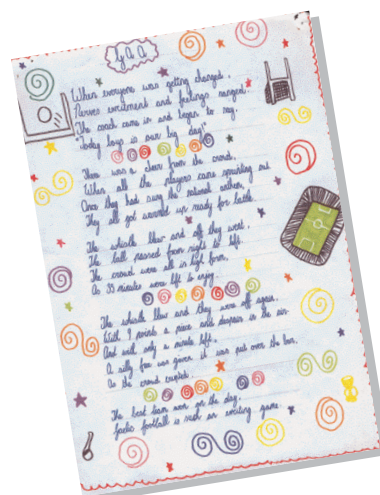 G.A.A.
When everyone was getting changed,
Nerves excitement and feelings ranged.
The coach came in and began to say,
"Today boys is our big day!"
There was a cheer from the crowd,
When all the players came sprinting out
Once they had sung the national anthem,
They all got warmed up ready for battle.
The whistle blew and off they went,
The ball passed from right to left.
The crowd were all in high form,
As 35 minutes were left to enjoy.
The whistle blew and they were off again,
With 7 points a piece and despair in the air.
And with only a minute left,
A silly free was given it was put over the bar,
As the crowd erupted.
The best team won on the day,
Gaelic football is such an exciting game.